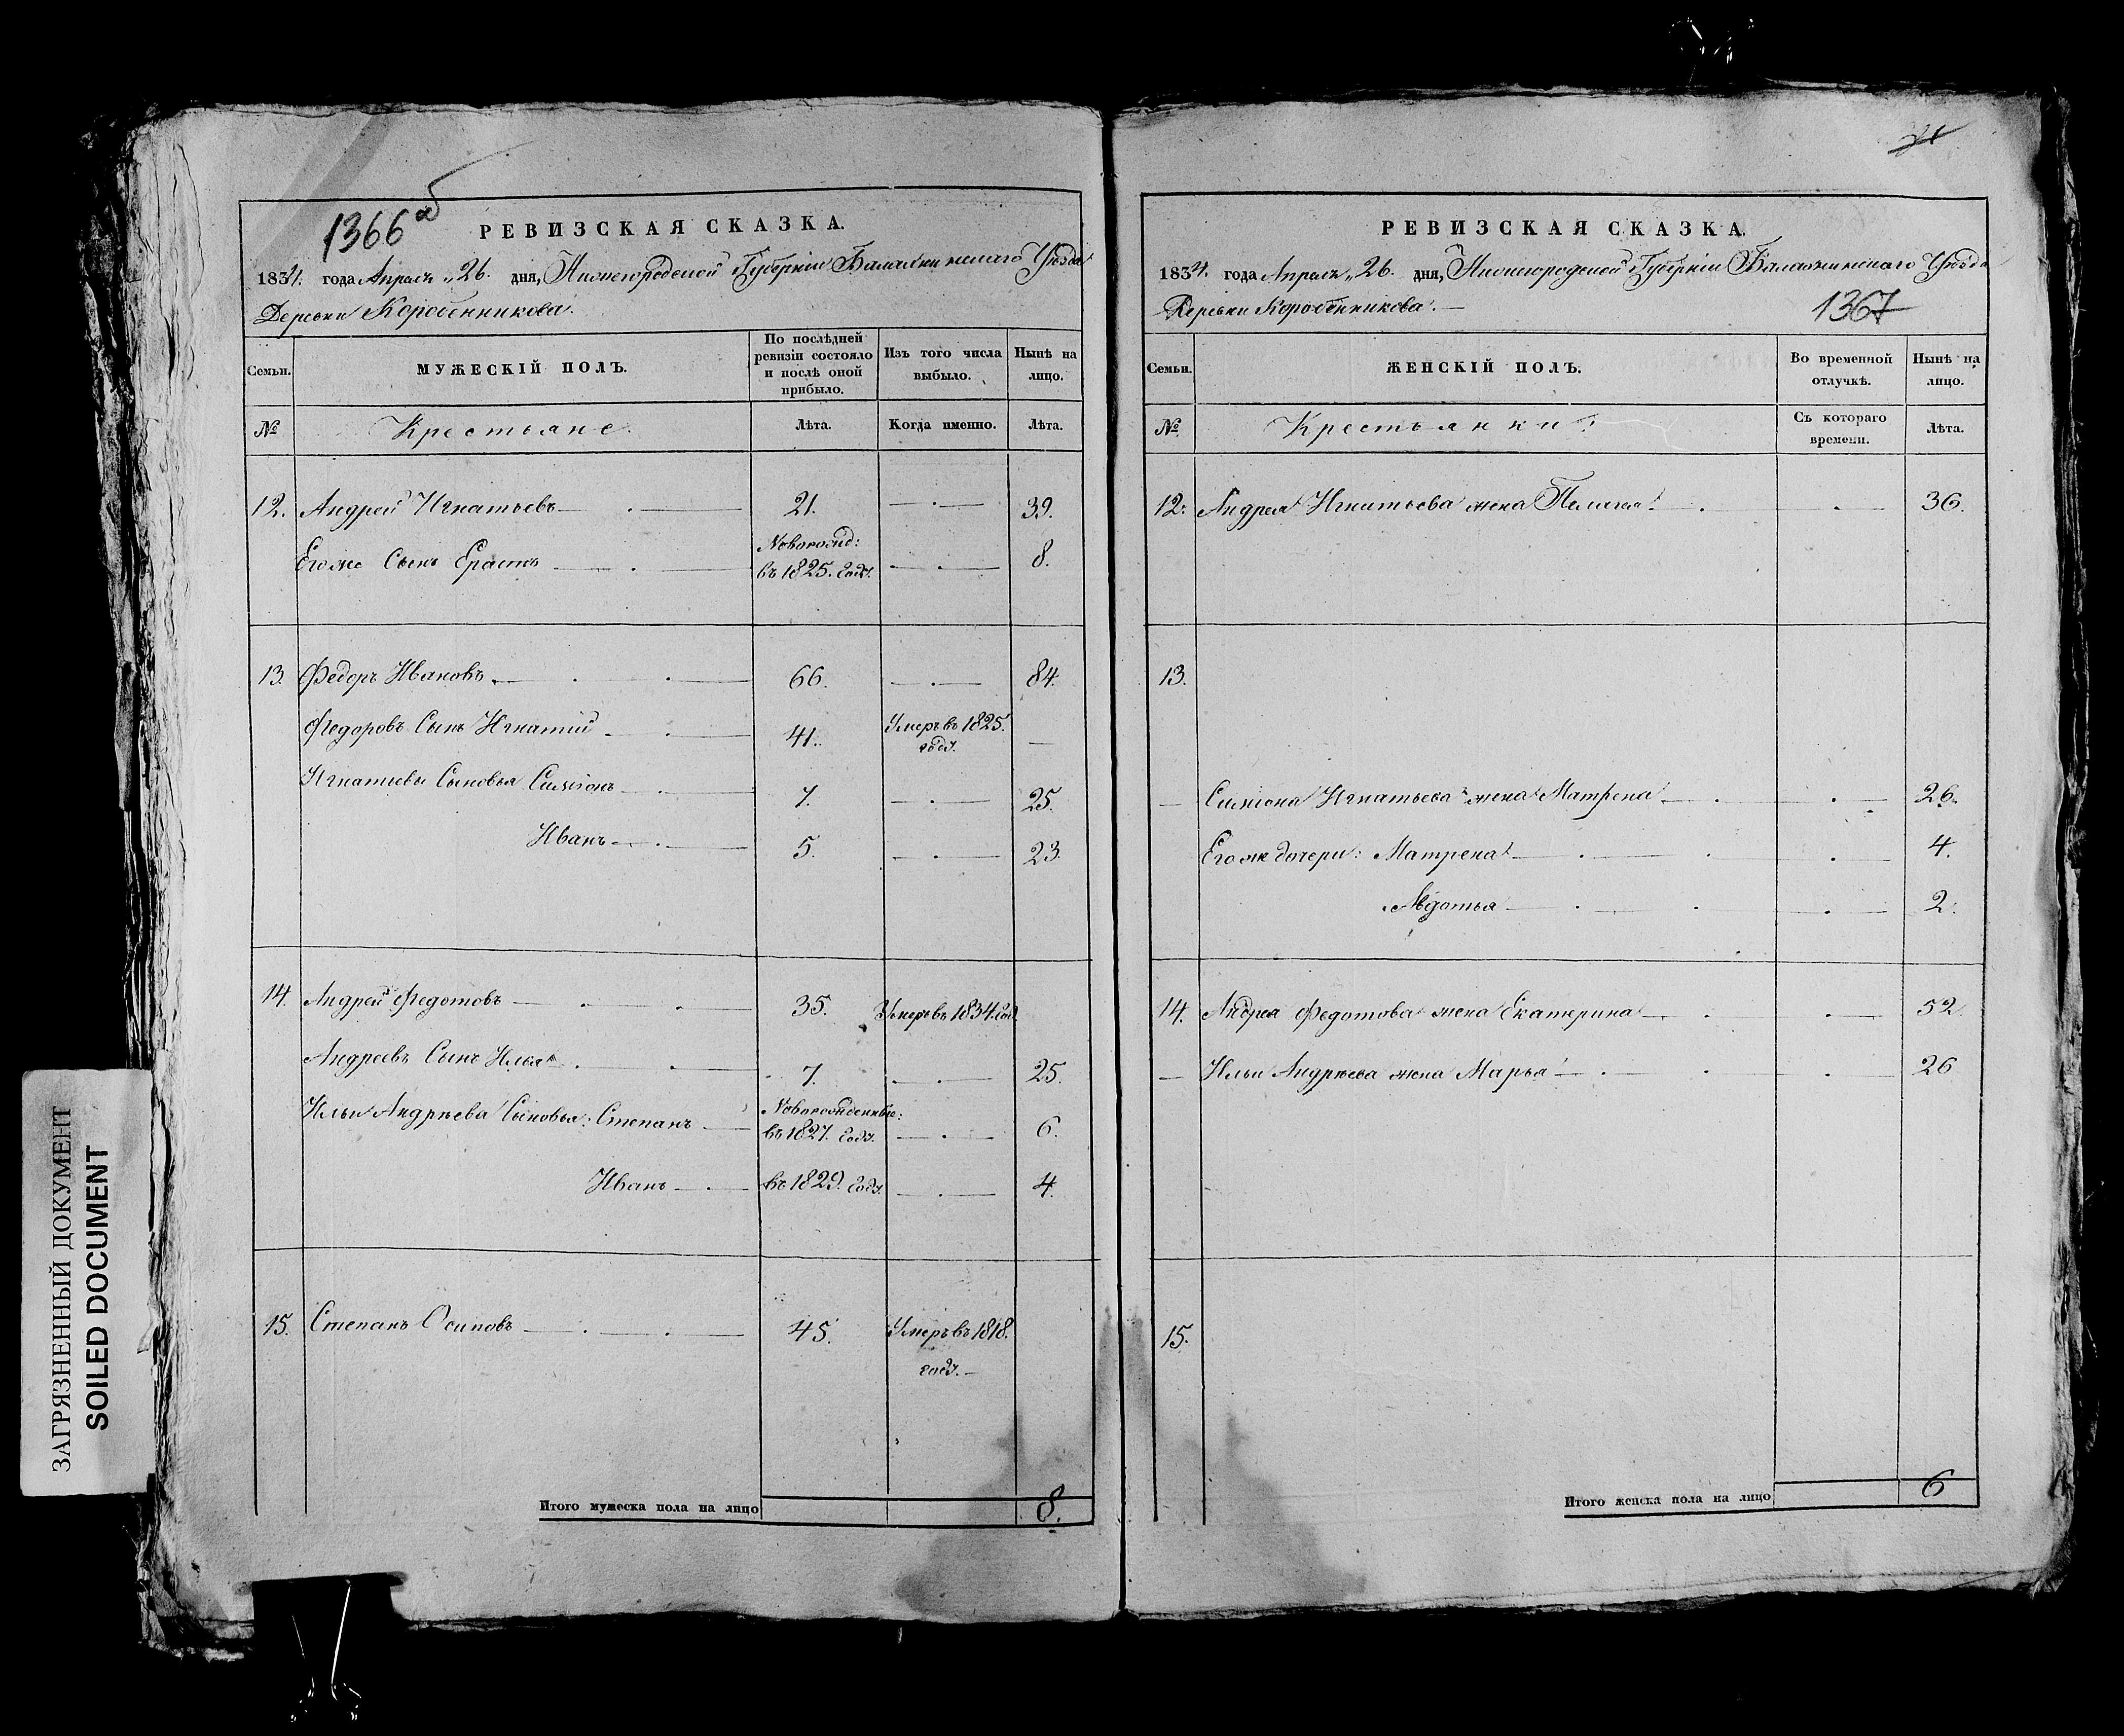 1366 об
РЕВИЗСКАЯ СКАЗКА.
1834. года Апреля „26. дня, Нижегородской Губерніи Балахнинскаго Уѣзда
Деревни Коробенникова.
Семьи.
МУЖЕСКІЙ ПОЛЪ.
По послѣдней
ревизіи состояло
и послѣ оной
прибыло.
Изъ того числа
выбыло.
Нынѣ на
лицо.
№
Крестьяне.
Лѣта.
Когда именно.
Лѣта.
12. Андрей Игнатьевъ 21. 39.
Новорожд:
Егоже Сынъ Ерастъ въ 1825. году. 8.
13. Федоръ Ивановъ 66. 84.
Федоровъ Сынъ Игнатій 41. Умеръ въ 1825.
году.
Игнатьевы Сыновья Симіонъ 7. 25.
Иванъ 5. 23.
14. Андрей Федотовъ 35. Умеръ въ 1834. год.
Андреевъ Сынъ Илья 7. 25.
Новорожденные:
Ильи Андрѣева Сыновья: Степанъ въ 1827. году. 6.
Иванъ въ 1829. году. 4.
15. Степанъ Осиповъ 45. Умеръ въ 1818.
году.
Итого мужеска пола на лицо 8.
РЕВИЗСКАЯ СКАЗКА.
1834. года Апреля „26. дня, Нижегородской Губерніи Балахнинскаго Уѣзда
Деревни Коробенникова.
1367
Семьи.
ЖЕНСКІЙ ПОЛЪ.
Во временной
отлучкѣ.
Нынѣ на
лицо.
№.
Крестьянки:
Съ котораго
времени.
Лѣта.
12. Андрея Игнатьева жена Пелагея 36.
13.
Симіона Игнатьева жена Матрена 26.
Егоже дочери: Матрена 4.
Авдотья 2.
14. Андрея Федотова жена Екатерина 52.
Ильи Андрѣева жена Марья 26
15.
Итого женска пола на лицо 6
ЗАГРЯЗНЕННЫЙ ДОКУМЕНТ
SOILED DOCUMENT